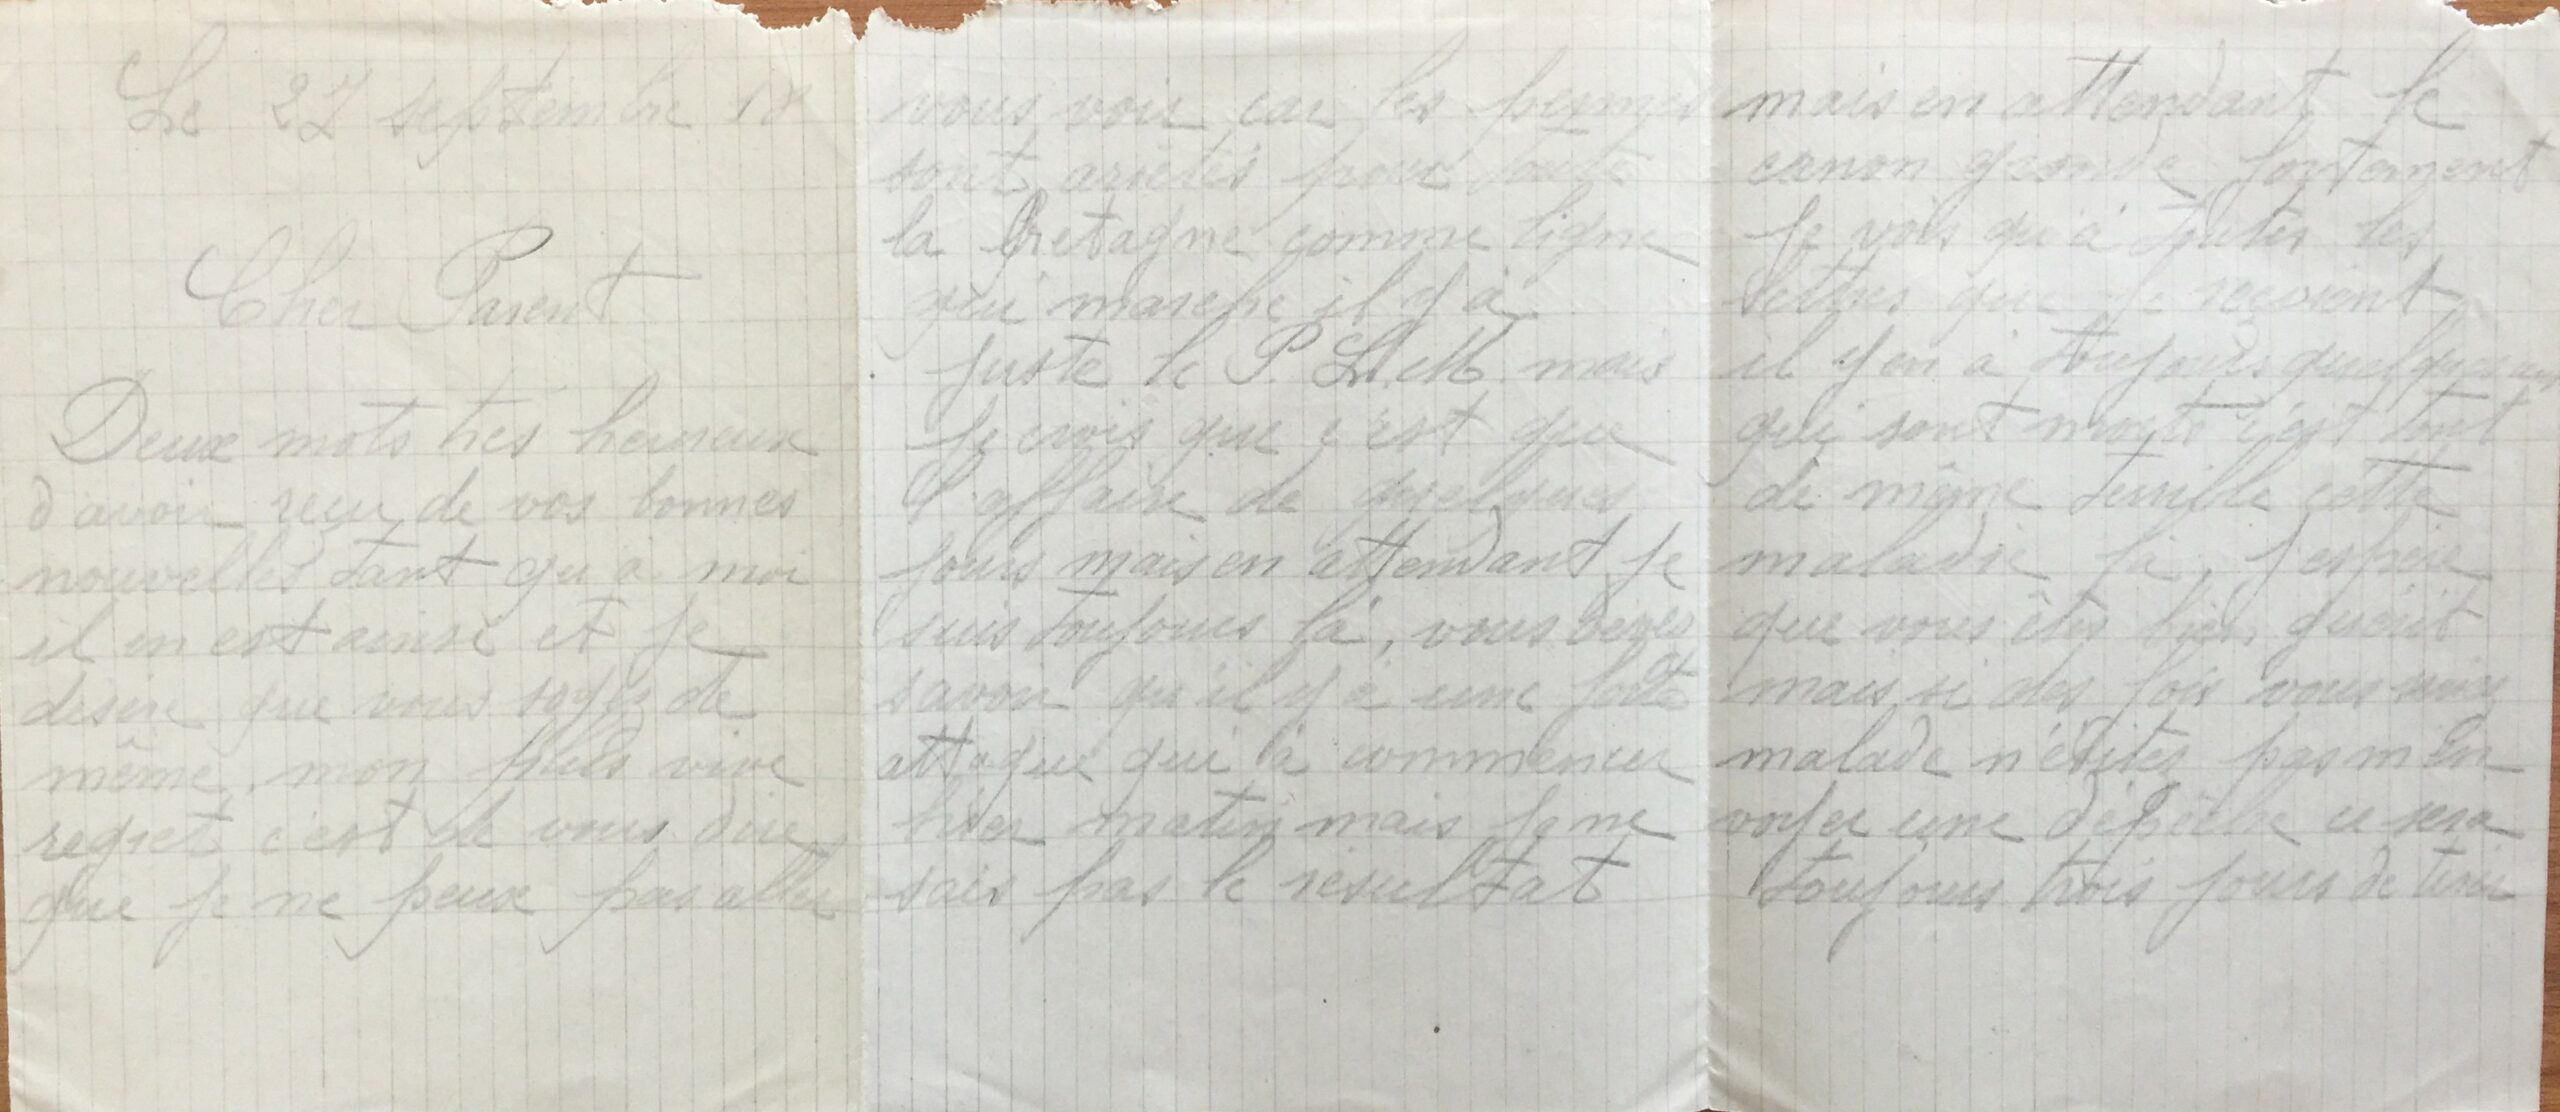 Le 27 septembre 18
Cher Parent
Deux mots très heureux
d'avoir reçu de vos bonnes
nouvelles tant qu'a moi
il en est ainsi et je
désire que vous soyez de
même, mon plus vive
regret c'est de vous dire
que je ne peux pas aller
vous voir car les permes
sont arrêtés pour toute
la Bretagne comme ligne
qui marche il y à
juste le P.L.M. mais
je crois que c'est que
l'affaire de quelques
jours mais en attendant je
suis toujours là, vous
savoir qu'il y à une forte
attaque qui à commencer
hier matin mais je ne
sais pas le résultat
mais en attendant le
canon gronde fortement
Je vois qu'à toutes les
lettres que je recoient
il y en à toujours
qui sont morts c'est tout
de même terrible cette
maladie là, j'espère
que vous êtes bien guérit
mais si des fois vous
malade n'ésites pas m'en
voyer une dépêche ce sera
toujours trois jours de